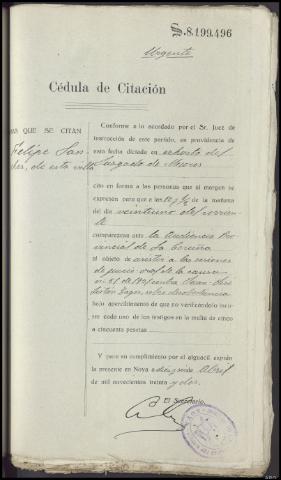 S.8.199.496
Urgente
Cédula de Citación
AS QUE SE CITAN
Felipe San
de esta villa
Conforme a lo acordado por el Sr. Juez de
instrucción de este partido, en providencia de
esta fecha dictada en exhorto del
Juzgado de Muros
cito en forma a las personas que al margen se
expresan para que a las 10 y ½ de la mañana
del día veintiuno del corrien
te
comparezcan ante la Audiencia Pro
vincial de La Coruña
al objeto de asistir a las sesiones
de juicio oral de la causa
contra
sobre desobediencia
bajo apercibimiento de que no verificándolo incurre
cada uno de los testigos en la multa de cinco
a cincuenta pesetas
Y para su cumplimiento por el alguacil expido
la presente en Noya a Abril
de mil novecientos treinta y dos.
El Secretario,